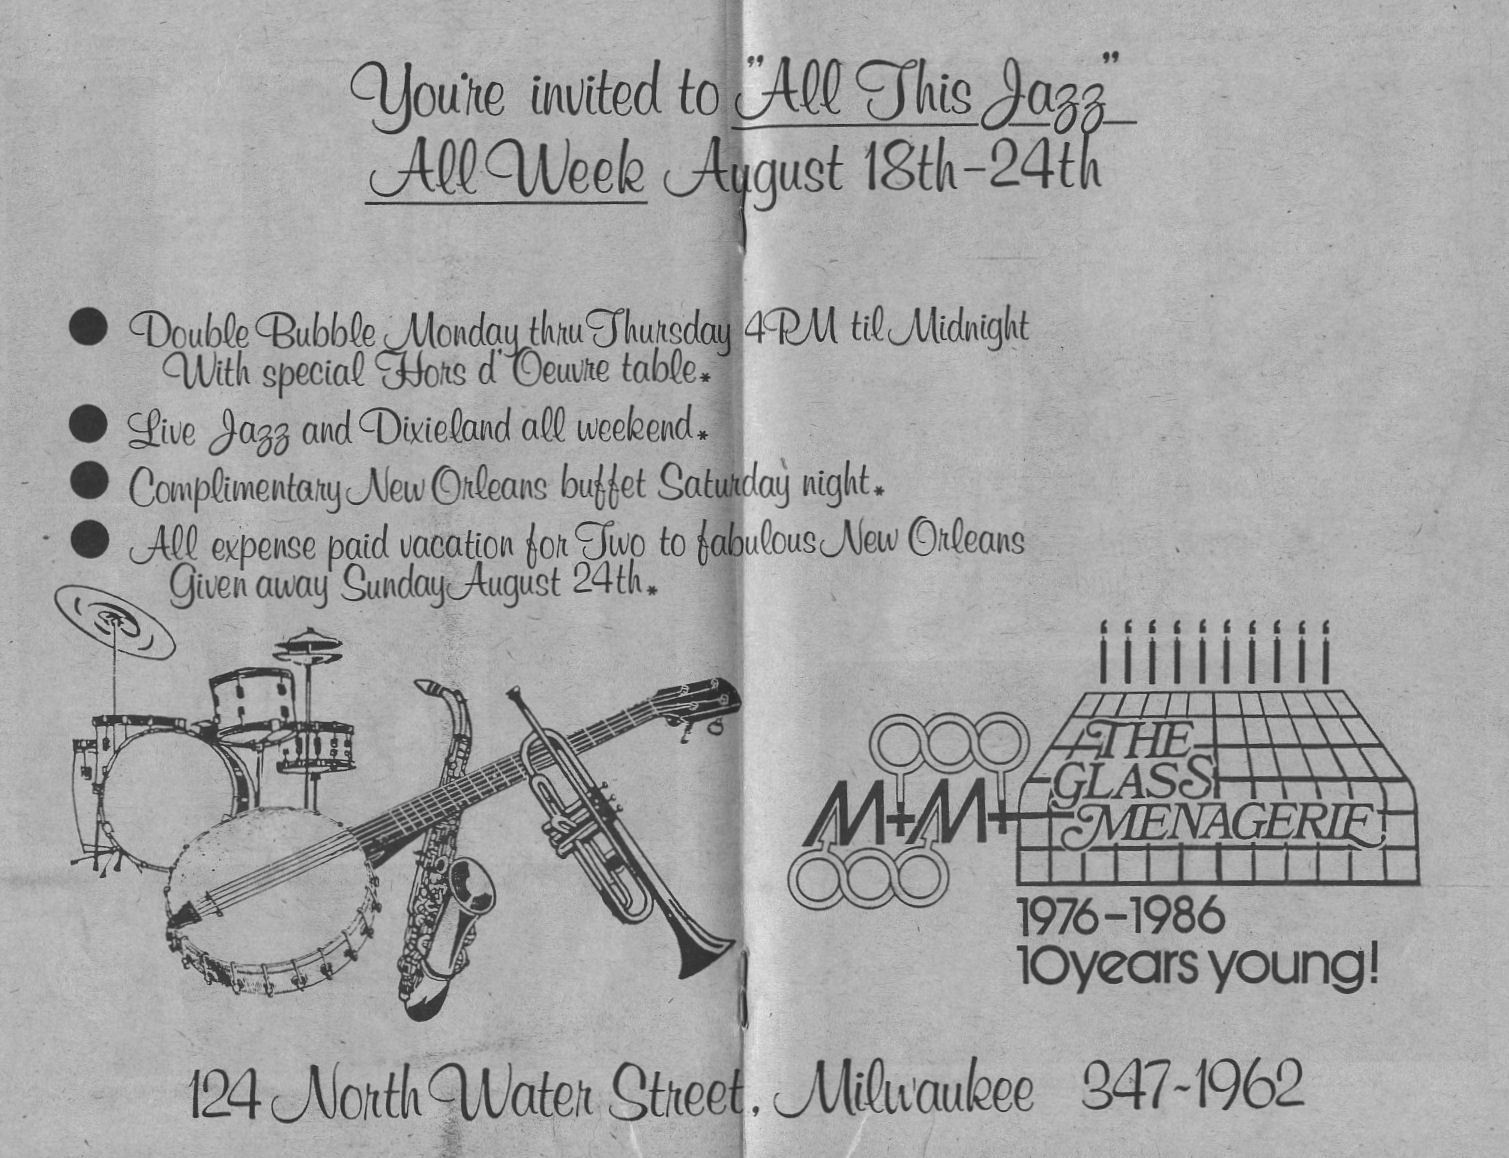 You're invited to "All This Jazz"
All Week August 18th-24th
Double Bubble Monday thru Thursday 4PM til Midnight
With special Hors d'Oeuvre table.
Live Jazz and Dixieland all weekend.
Complimentary New Orleans buffet Saturday night.
All expense paid vacation for Two to fabulous New Orleans
Given away Sunday August 24th.
M+M+
THE
GLASS
MENAGERIE
1976-1986
10 years young!
124 North Water Street, Milwaukee 347-1962